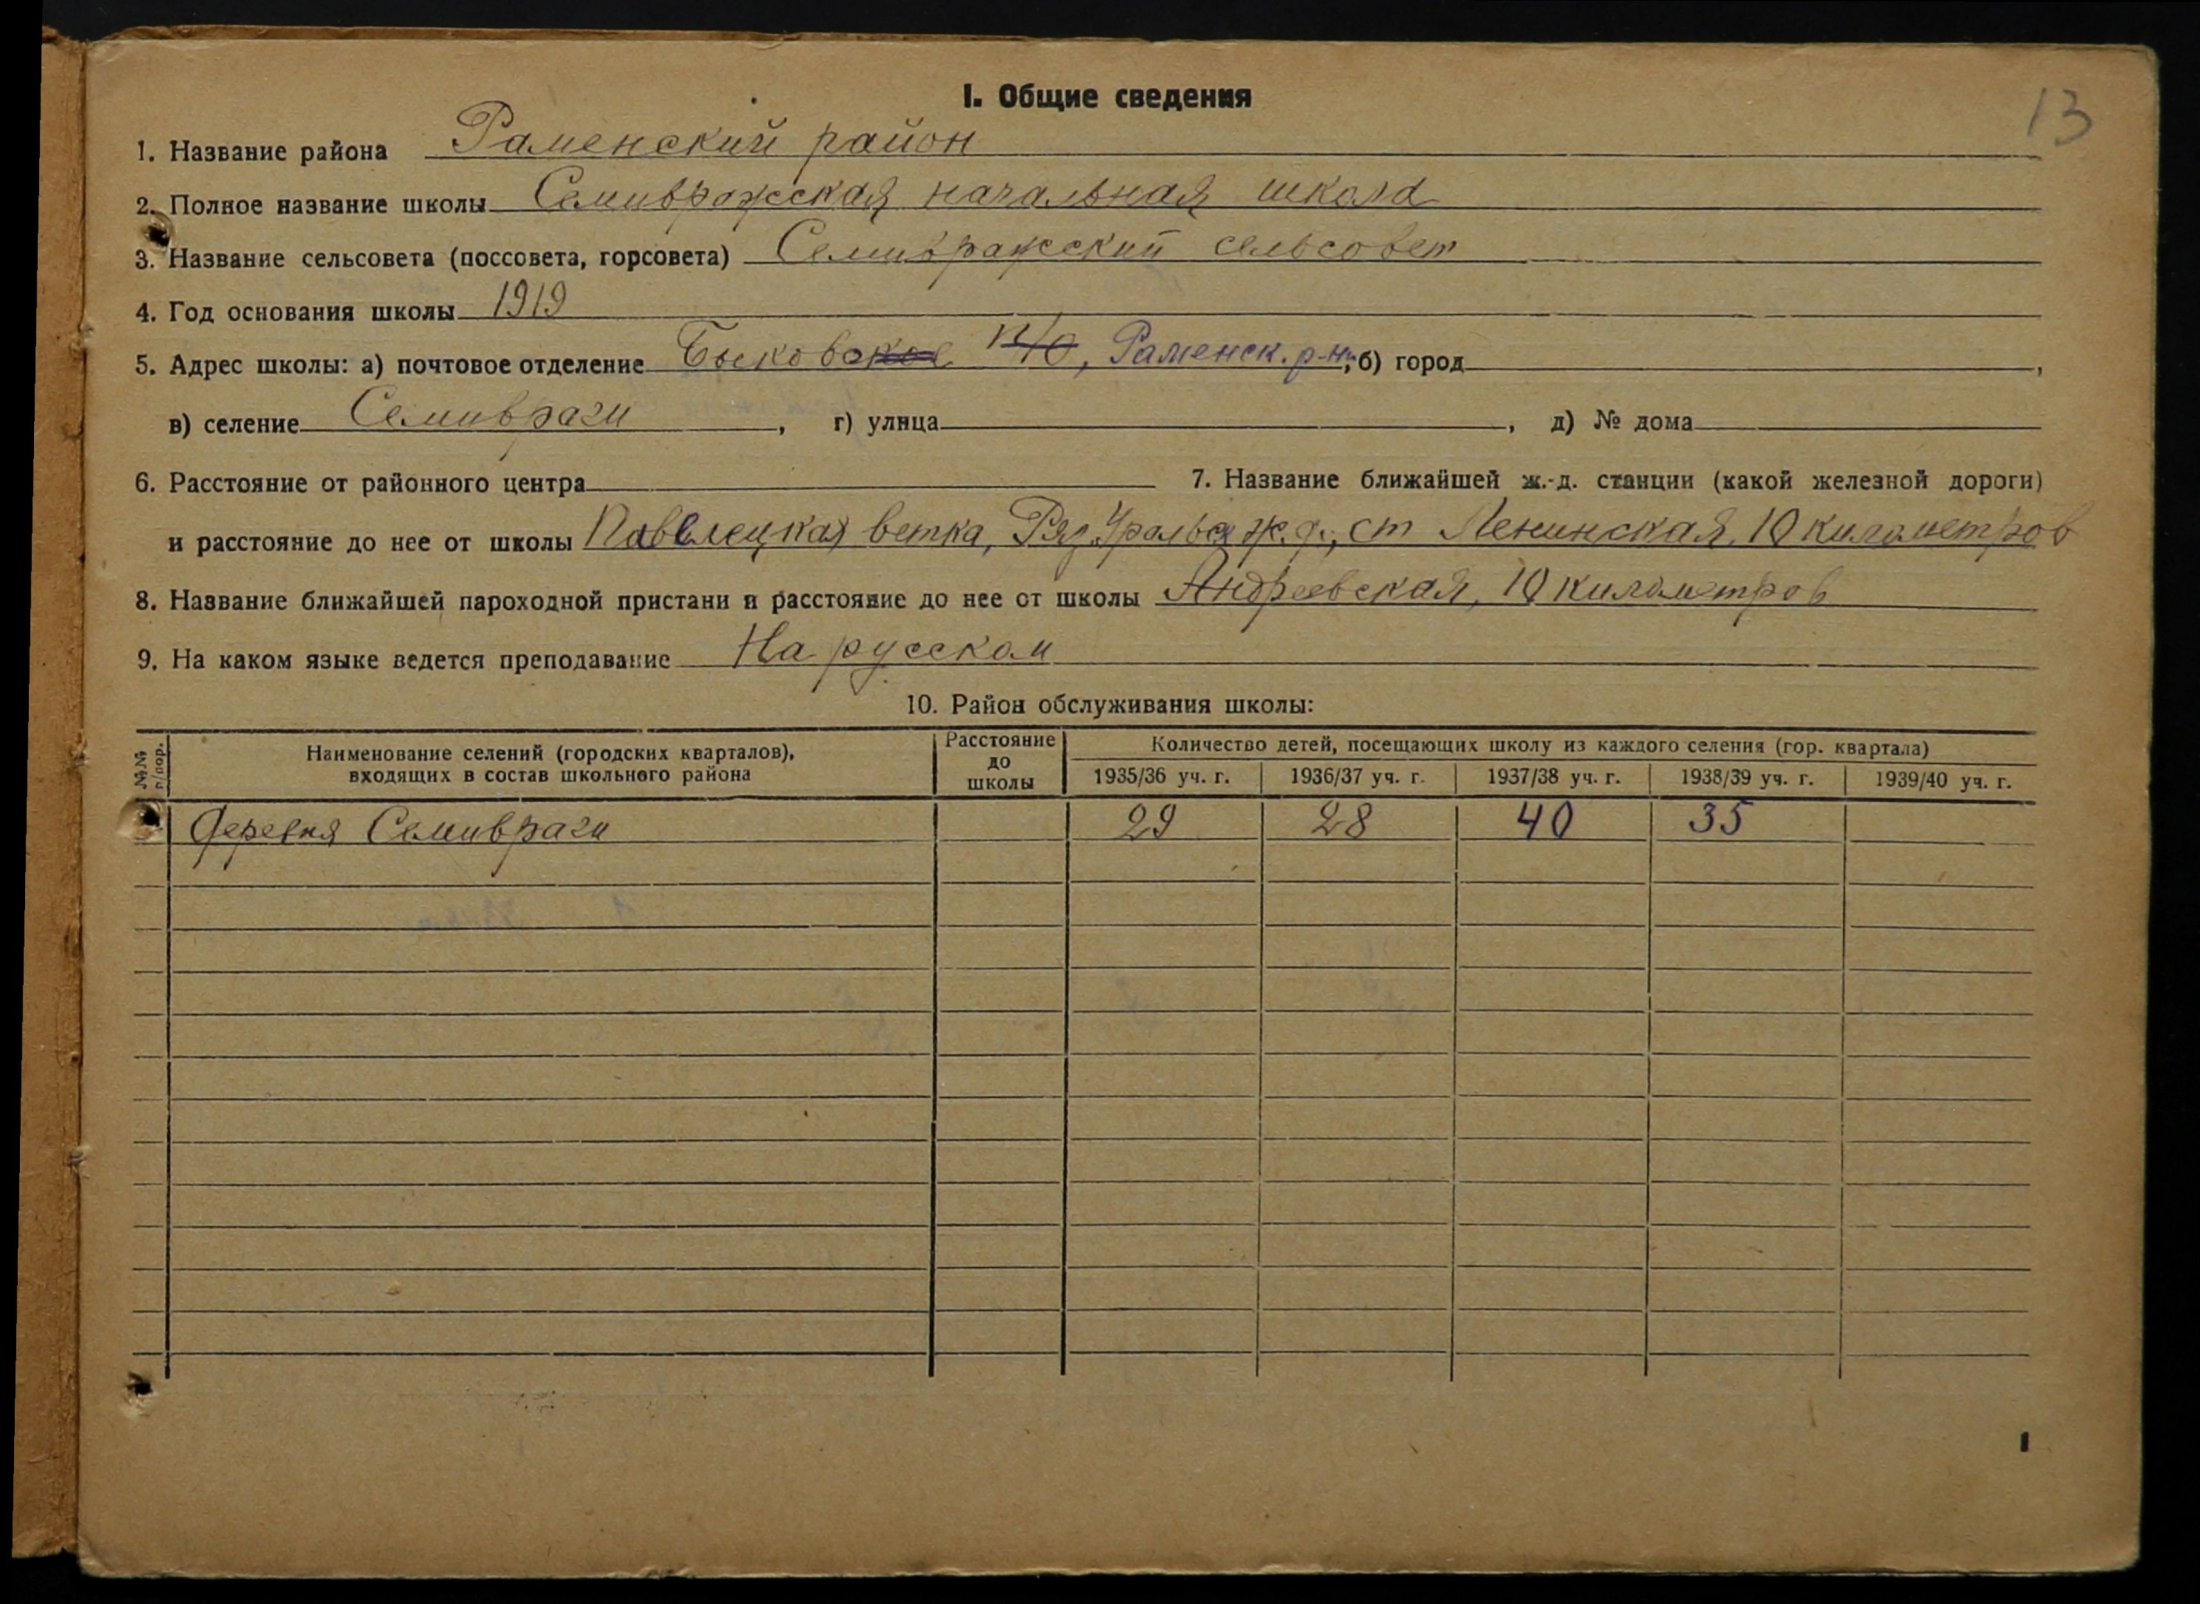 13
I. Общие сведения
1. Название района Раменский район
2. Полное название школы Семивражская начальная школа
3. Название сельсовета (поссовета, горсовета) Семивражский сельсовет
4. Год основания школы 1919
5. Адрес школы: а) почтовое отделение Быковское п/о, Раменск. р-н; б) город ,
в) селение Семивраги , г) улица , д) № дома
6. Расстояние от районного центра 7. Название ближайшей ж.-д. станции (какой железной дороги)
и расстояние до нее от школы Павелецкая ветка, Ряз. Уральск ж.д., ст Ленинская, 10 километров
8. Название ближайшей пароходной пристани и расстояние до нее от школы Андреевская, 10 километров
9. На каком языке ведется преподавание На русском
10. Район обслуживания школы:
№№ п/пор. Наименование селений (городских кварталов), Расстояние до школы Количество детей, посещающих школу из каждого селения (гор. квартала)
входящих в состав школьного района 1935/36 уч. г. 1936/37 уч. г. 1937/38 уч. г. 1938/39 уч. г. 1939/40 уч. г.
Деревня Семивраги 29 28 40 35
1